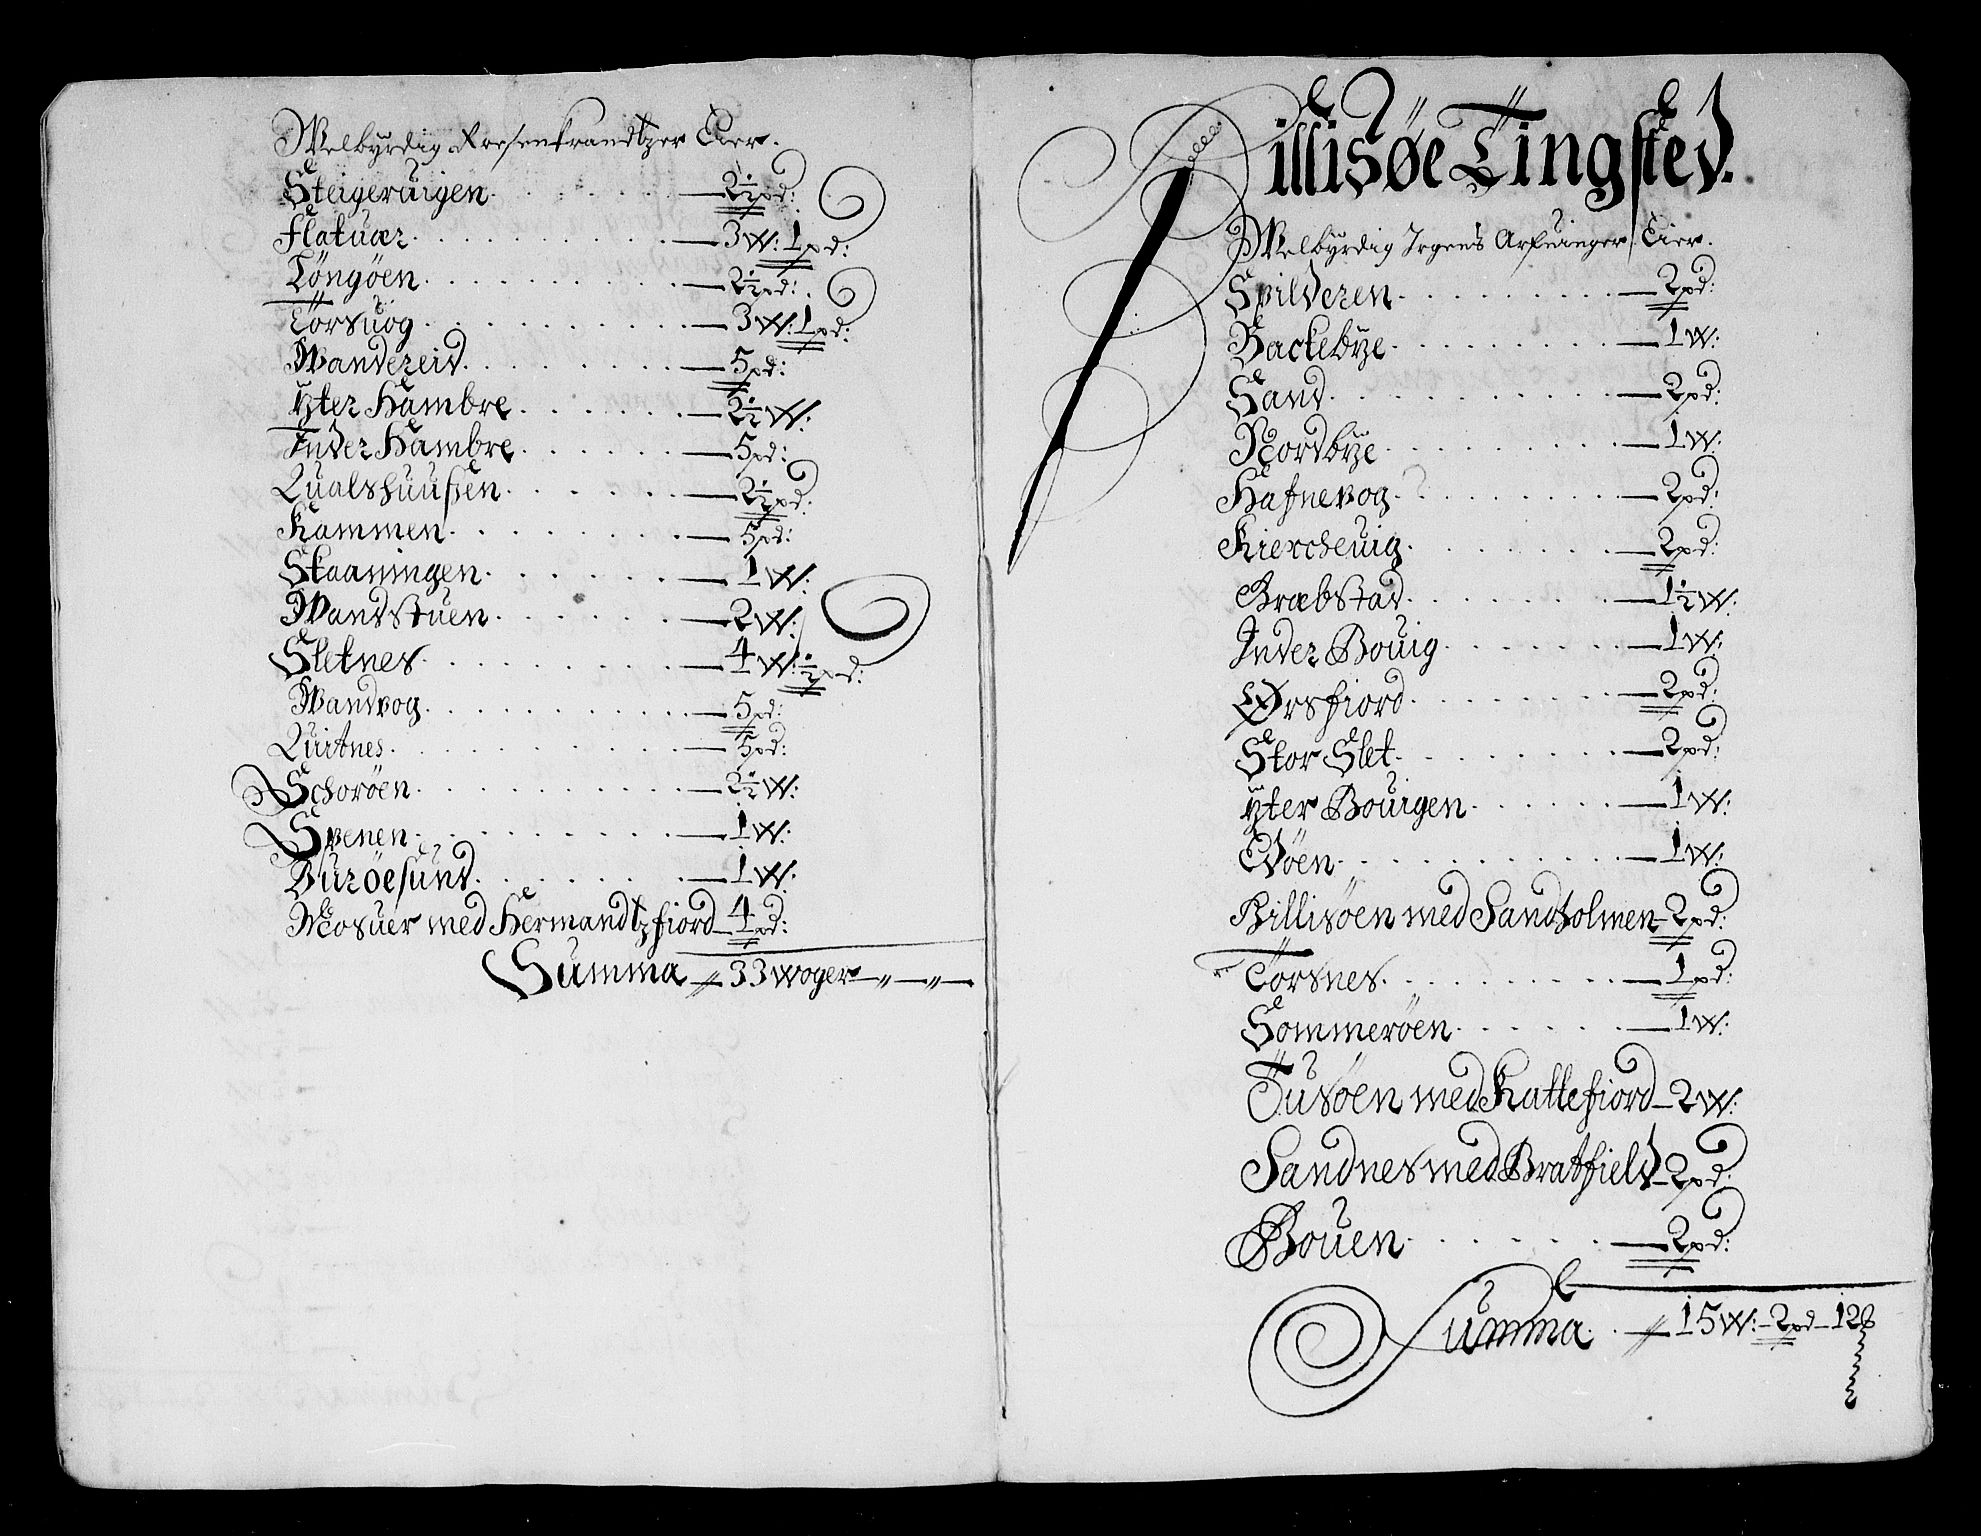 Welbyrdig Rosenkrandtzer Eier.
Steigeruigen. — 2½ pd:
Flatuær. — 3 W: 1 pd:
Töngöen. — 2½ pd:
Törsuog. — 3 W: 1 pd:
Wandereid. — 5 pd:
Yter Hambre. — 2½ W:
Inder Hambre. — 5 pd:
Qualshuussen. — 2½ pd:
Kammen. — 5 pd:
Skaaningen. — 1 W:
Wandstuen. — 2 W:
Sletnes. — 4 W: ½ pd:
Wandvog. — 5 pd:
Quitnes. — 5 pd:
Schoröen. — 2½ W:
Spenen. — 1 W:
Buröesund. — 1 W:
Mosuer med Hermandtzfiord — 4 pd:
Summa // 33 woger — " — " —
Hillisöe Tingsted.
Welbyrdig Irgens Arfuinger Eier.
Spilderen. — 2 pd:
Backebye. — 1 W:
Sand. — 2 pd:
Nordbye. — 1 W:
Hafnevog. — 2 pd:
Kiercheuig. — 2 pd:
Græbstad. — 1½ W:
Inder Bouig. — 1 W:
Ørsfiord. — 2 pd:
Stor Slet. — 2 pd:
Yter Bouigen. — 1 W:
Edöen. — 1 W:
Hillisöen med Sandholmen — 2 pd:
Torsnes. — 1 pd:
Sommeröen. — 1 W:
Tusöen med Kattefiord — 2 W:
Sandnes med Bratfield — 2 pd:
Bouen. — 2 pd:
Summa. // 15 W: — 2 pd — 12